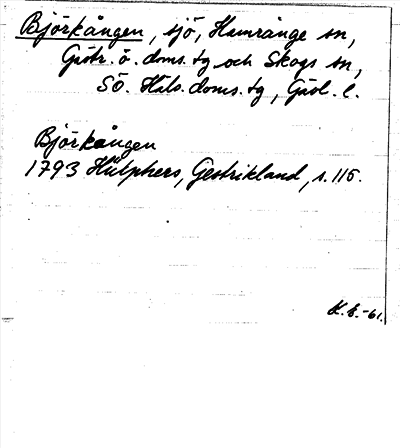 Björkången, sjö, Hamrånge sn,
Gästr. ö. doms. tg och Skogs sn,
Sö. Häls. doms. tg, Gävl. l.
Björkången
1793 Hülphers, Gestrikland, s. 115.
K.E.-61.